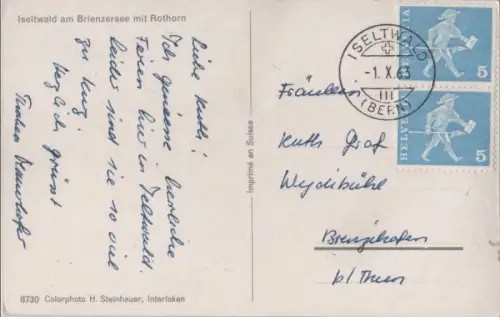 Iseltwald am Brienzersee mit Rothorn
Liebe Ruth!
Ich geniesse herrliche
Ferien hier in Iseltwald.
Leider sind sie so viel
zu kurz.
Herzlich grüsst
8730 Colorphoto H. Steinhauer, Interlaken
Imprimé en Suisse
ISELTWALD
-1. X. 63
III
(BERN)
HELVETIA 5
HELVETIA 5
Fräulein
Ruth Graf
b/Thun